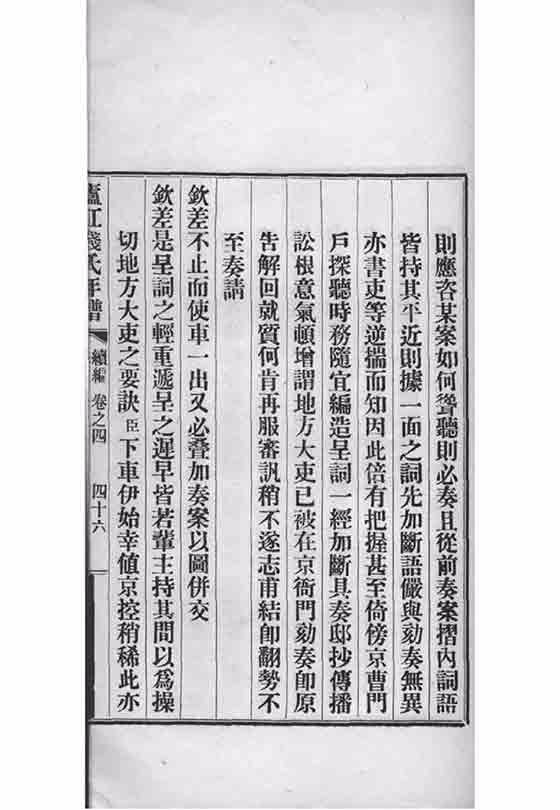 則應咨某案如何聳聽則必奏且從前奏案摺內詞語
皆持其平近則據一面之詞先加斷語儼與劾奏無異
亦書吏等逆揣而知因此倍有把握甚至倚傍京曹門
戶探聽時務隨宜編造呈詞一經加斷具奏邸抄傳播
訟根意氣頓增謂地方大吏已被在京衙門劾奏卽原
告解回就質何肯再服審訊稍不遂志甫結卽翻勢不
至奏請
欽差不止而使車一出又必叠加奏案以圖併交
欽差是呈詞之輕重遞呈之遲早皆若輩主持其間以爲操
切地方大吏之要訣臣下車伊始幸値京控稍稀此亦
廬江錢氏年譜 續編 卷之四 四十六